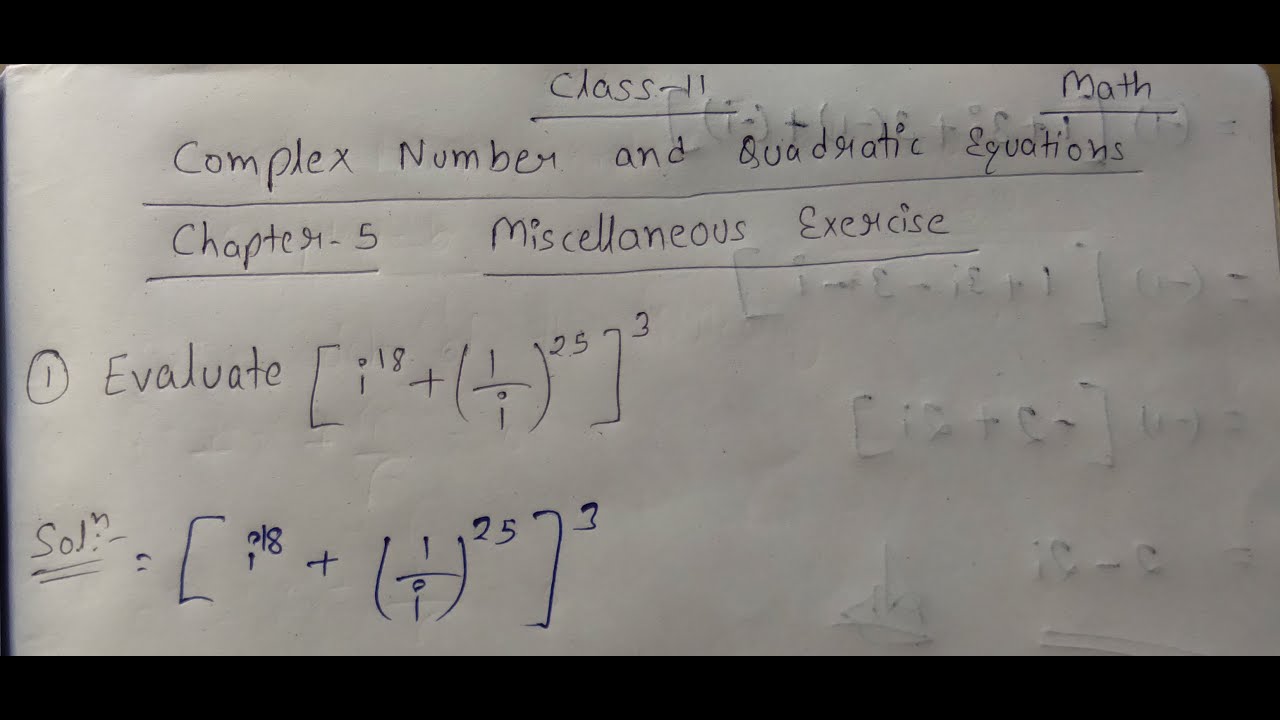 Class-11 Math
Complex Number and Quadratic Equations
Chapter-5 Miscellaneous Exercise
① Evaluate [i¹⁸ + (1/i)²⁵]³
Solⁿ:- = [i¹⁸ + (1/i)²⁵]³